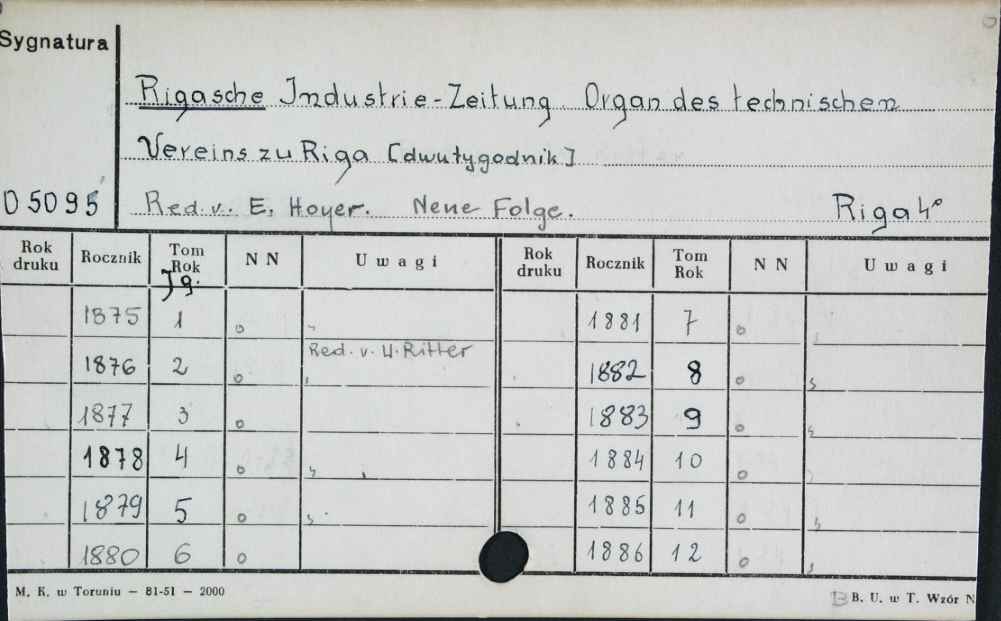 Sygnatura
Rigasche Industrie-Zeitung. Organ des technischen
Vereins zu Riga [dwutygodnik]
D 5095 Red. v. E. Hoyer. Neue Folge. Riga 4°
Rok druku Rocznik Tom Rok Jg. N N Uwagi Rok druku Rocznik Tom Rok N N Uwagi
1875 1 1881 7
1876 2 Red. v. H. Ritter 1882 8
1877 3 1883 9
1878 4 1884 10
1879 5 1885 11
1880 6 1886 12
M. K. w Toruniu — 81-51 — 2000 B. U. w T. Wzór N